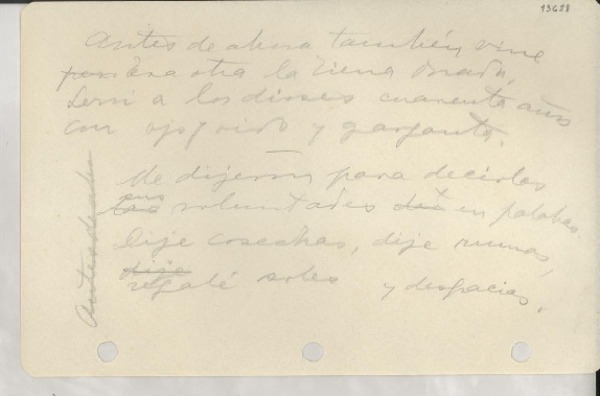 13628
Antes de ahora también vine
Era otra la tierra
Serví a los dioses cuarenta años
con ojo, oído y garganta.
Me dijeron para decirlas
sus voluntades en palabras.
Dije cosechas, dije
dije
regalé soles y desgracias.
Antes de ahora